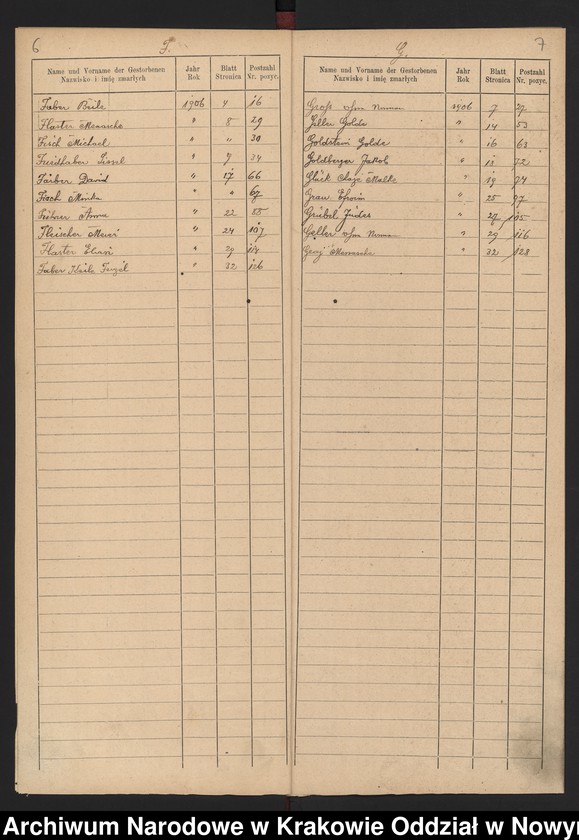 6
F.
Name und Vorname der Gestorbenen
Nazwisko i imię zmarłych
Jahr
Rok
Blatt
Stronica
Postzahl
Nr. pozyc.
Faber Beile 1906 4 16
Flaster Menasche " 8 29
Fisch Michael " " 30
Freithaber Sissel " 9 34
Färber David " 17 66
Fisch Minka " " 67
Anna " 22
Fleischer " 24 107
Flaster " 29
Faber " 32 126
G.
7
Name und Vorname der Gestorbenen
Nazwisko i imię zmarłych
Jahr
Rok
Blatt
Stronica
Postzahl
Nr. pozyc.
Groß ohne Namen 1906 7 27
Geller Golde " 14 53
Goldstein Golde " 16 63
Goldberger Jakob " 72
Glück Chaje Malke " 19 74
Grau Efroim " 25 97
Griebel Judes " 27 105
Geller ohne Namen " 29 116
Menasche " 32 128
Archiwum Narodowe w Krakowie Oddział w Nowym